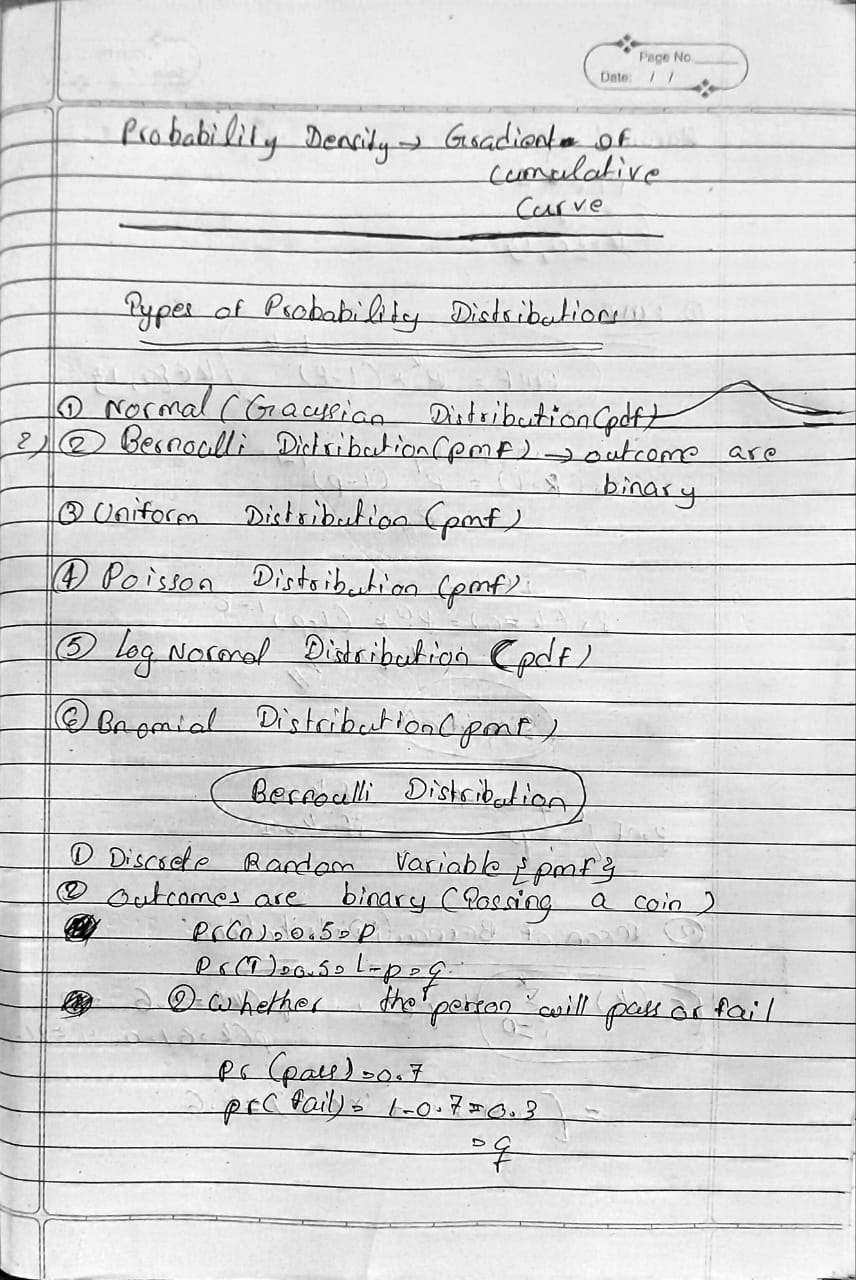 Page No.
Date: / /
Probability Density → Gradient of
cumulative
Curve
Types of Probability Distributions
① Normal (Gaussian Distribution (pdf)
2) ② Bernoulli Distribution (pmf) → outcome are
binary
③ Uniform Distribution (pmf)
④ Poisson Distribution (pmf)
⑤ Log Normal Distribution (pdf)
⑥ Bnomial Distribution (pmf)
Bernoulli Distribution
① Discrete Random Variable {pmf}
② Outcomes are binary (Tossing a coin)
Pr(H) = 0.5 = p
Pr(T) = 0.5 = 1-p = q
② Whether the person will pass or fail
Pr (pass) = 0.7
pr( fail) = 1-0.7 = 0.3
= q